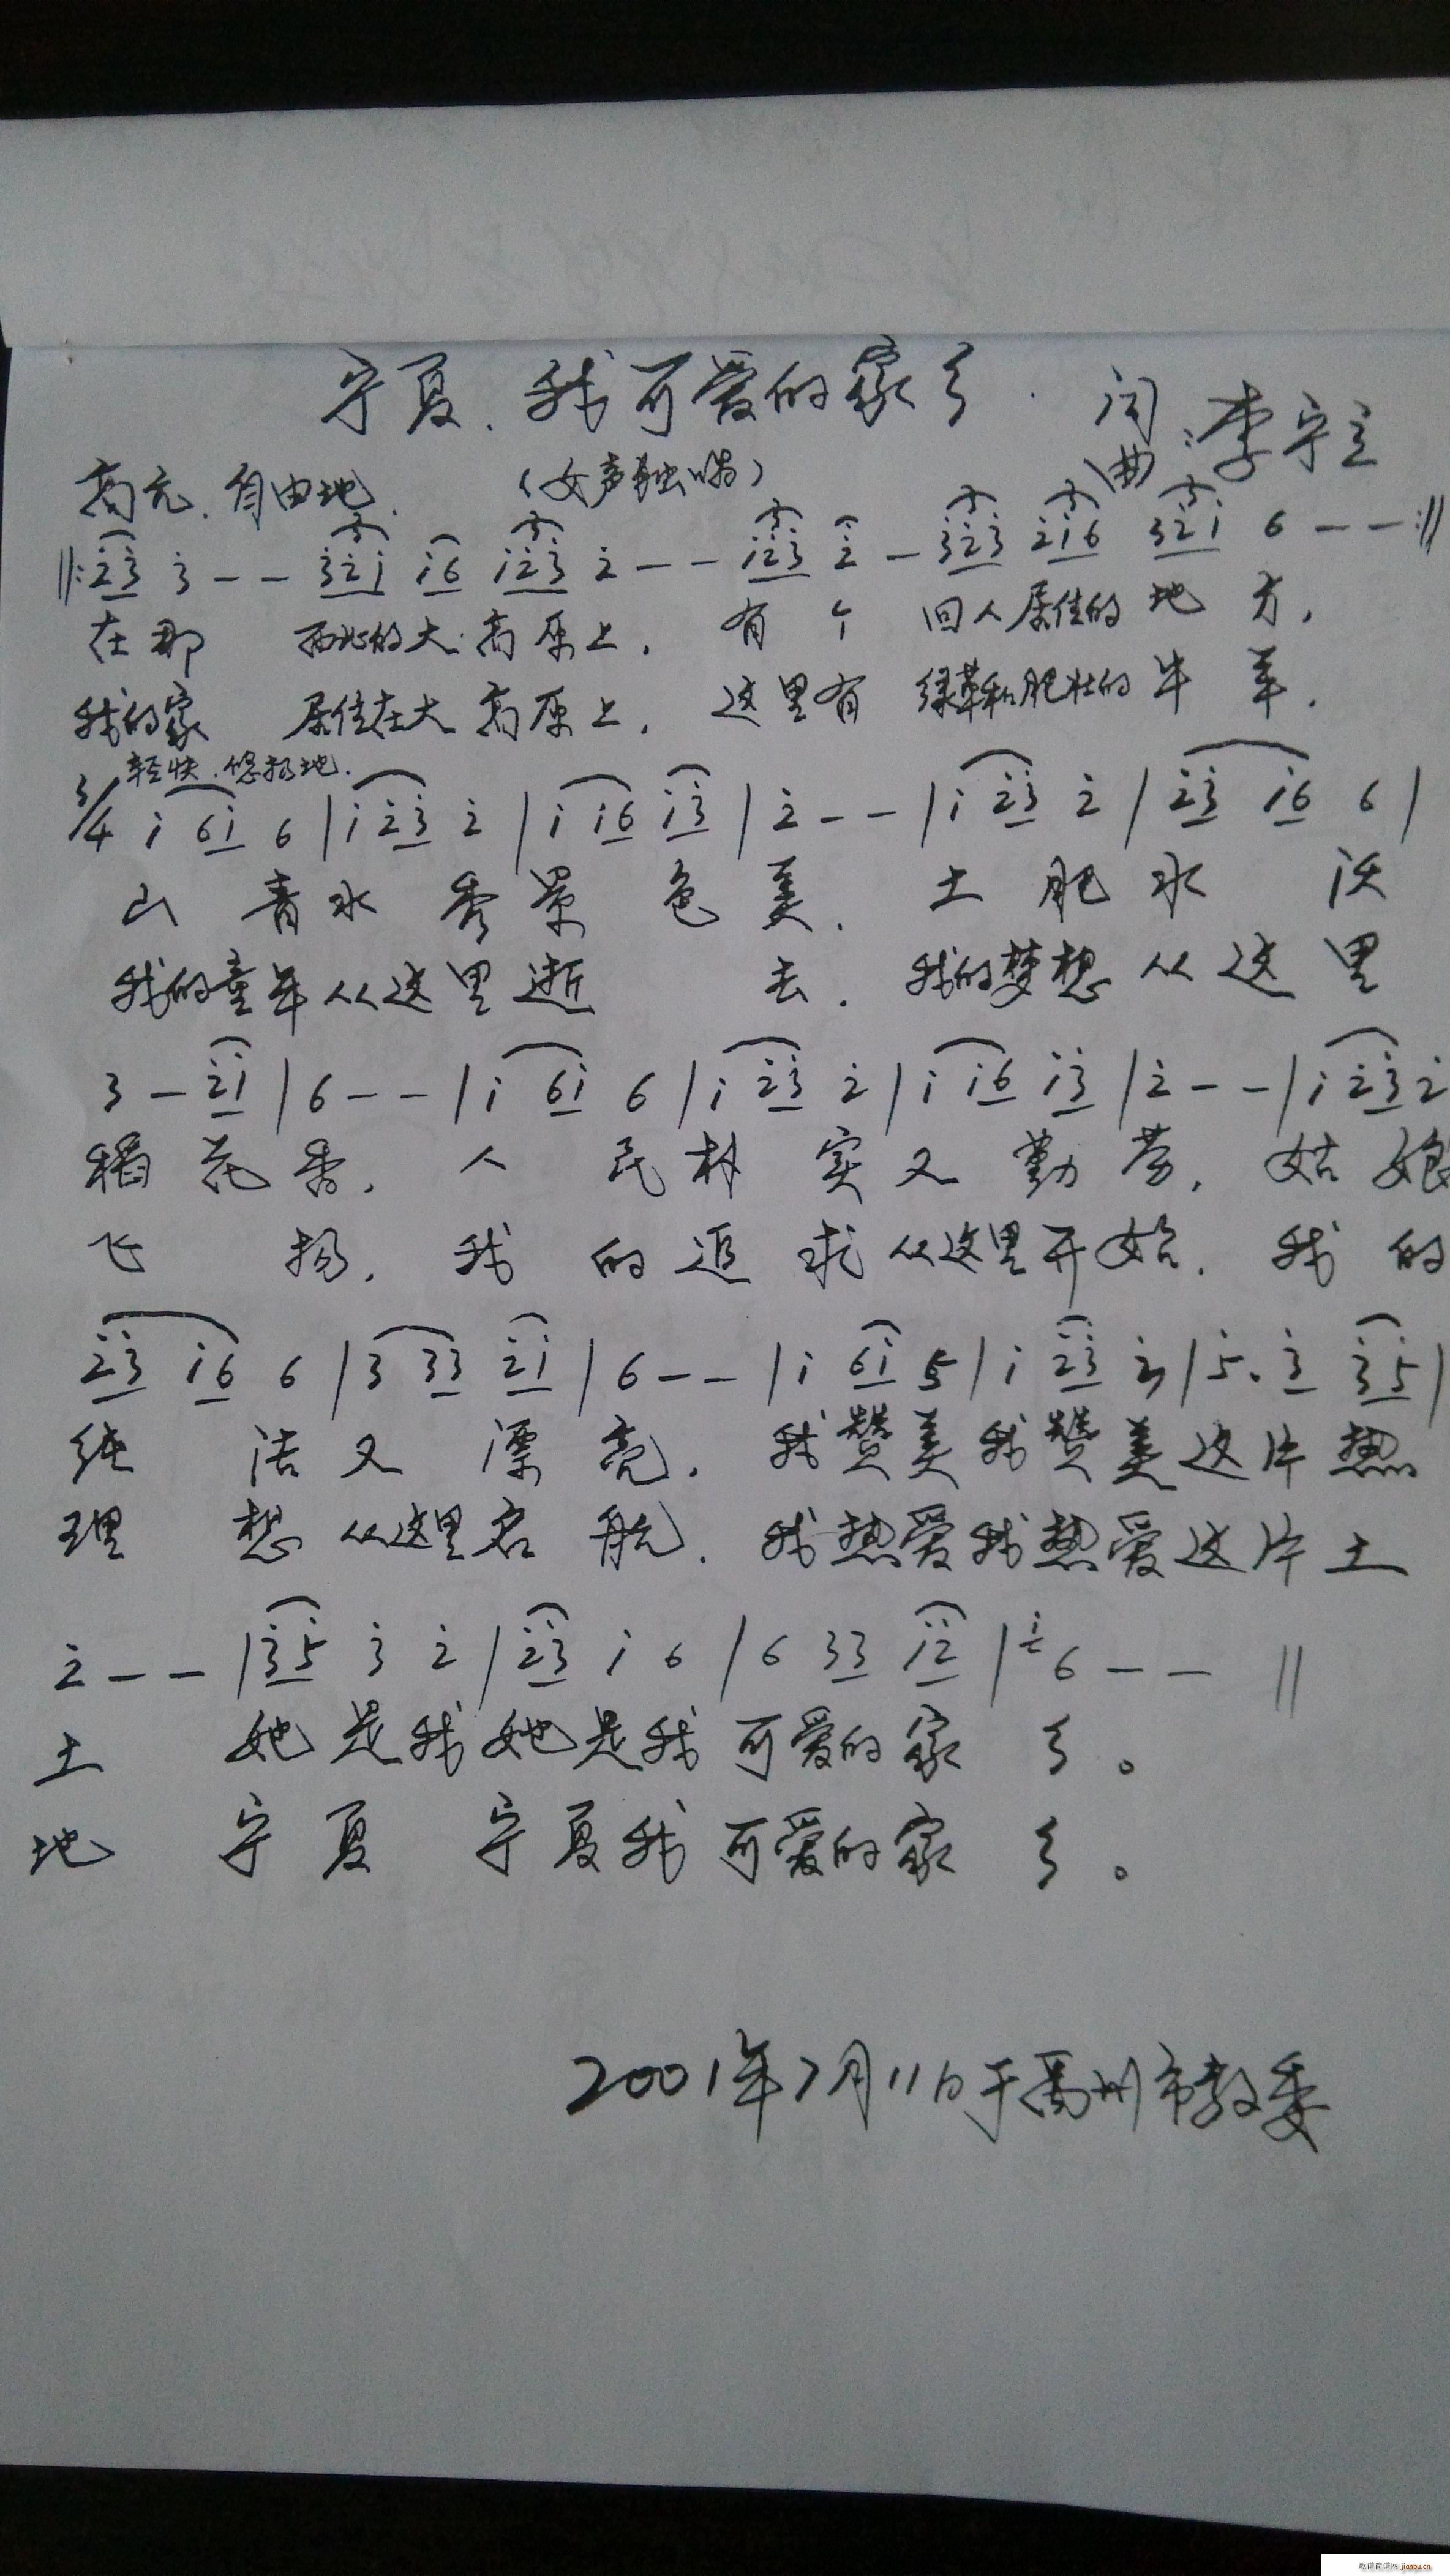 宁夏、我可爱的家乡.
词
曲:李宁立
高亢、自由地.
(女声独唱)
‖:2̇3̇ 3̇ - - 3̇2̇1̇ 1̇6 1̇2̇3̇ 2̇ - - 1̇2̇3̇ 2̇ - 3̇2̇3̇ 2̇1̇6 3̇2̇1̇ 6 - - :‖
在那 西北的大高原上. 有个 回人居住的地方,
我的家 居住在大高原上. 这里有 绿草和肥壮的牛羊.
轻快、悠扬地.
3/4 1̇ 61̇ 6 | 1̇ 2̇3̇ 2̇ | 1̇ 1̇6 1̇3̇ | 2̇ - - | 1̇ 2̇3̇ 2̇ | 2̇3̇ 1̇6 6 |
山青水秀景色美. 土肥水沃
我的童年从这里逝去. 我的梦想从这里
3 - 2̇1̇ | 6 - - | 1̇ 61̇ 6 | 1̇ 2̇3̇ 2̇ | 1̇ 1̇6 1̇3̇ | 2̇ - - | 1̇ 2̇3̇ 2̇
稻花香. 人民朴实又勤劳. 姑娘
飞扬. 我的追求从这里开始. 我的
2̇3̇ 1̇6 6 | 3 33 2̇1̇ | 6 - - | 1̇ 61̇ 5 | 1̇ 2̇3̇ 2̇ | 5̇. 3̇ 3̇5̇ |
纯洁又漂亮. 我赞美我赞美这片热
理想从这里启航. 我热爱我热爱这片土
2̇ - - | 3̇5̇ 3̇ 2̇ | 2̇3̇ 1̇ 6 | 6 33 1̇2̇ | 1̇6 - - ‖
土 她是我她是我可爱的家乡。
地 宁夏 宁夏我可爱的家乡。
2001年7月11日于禹州市教委
歌谱简谱网 jianpu.cn